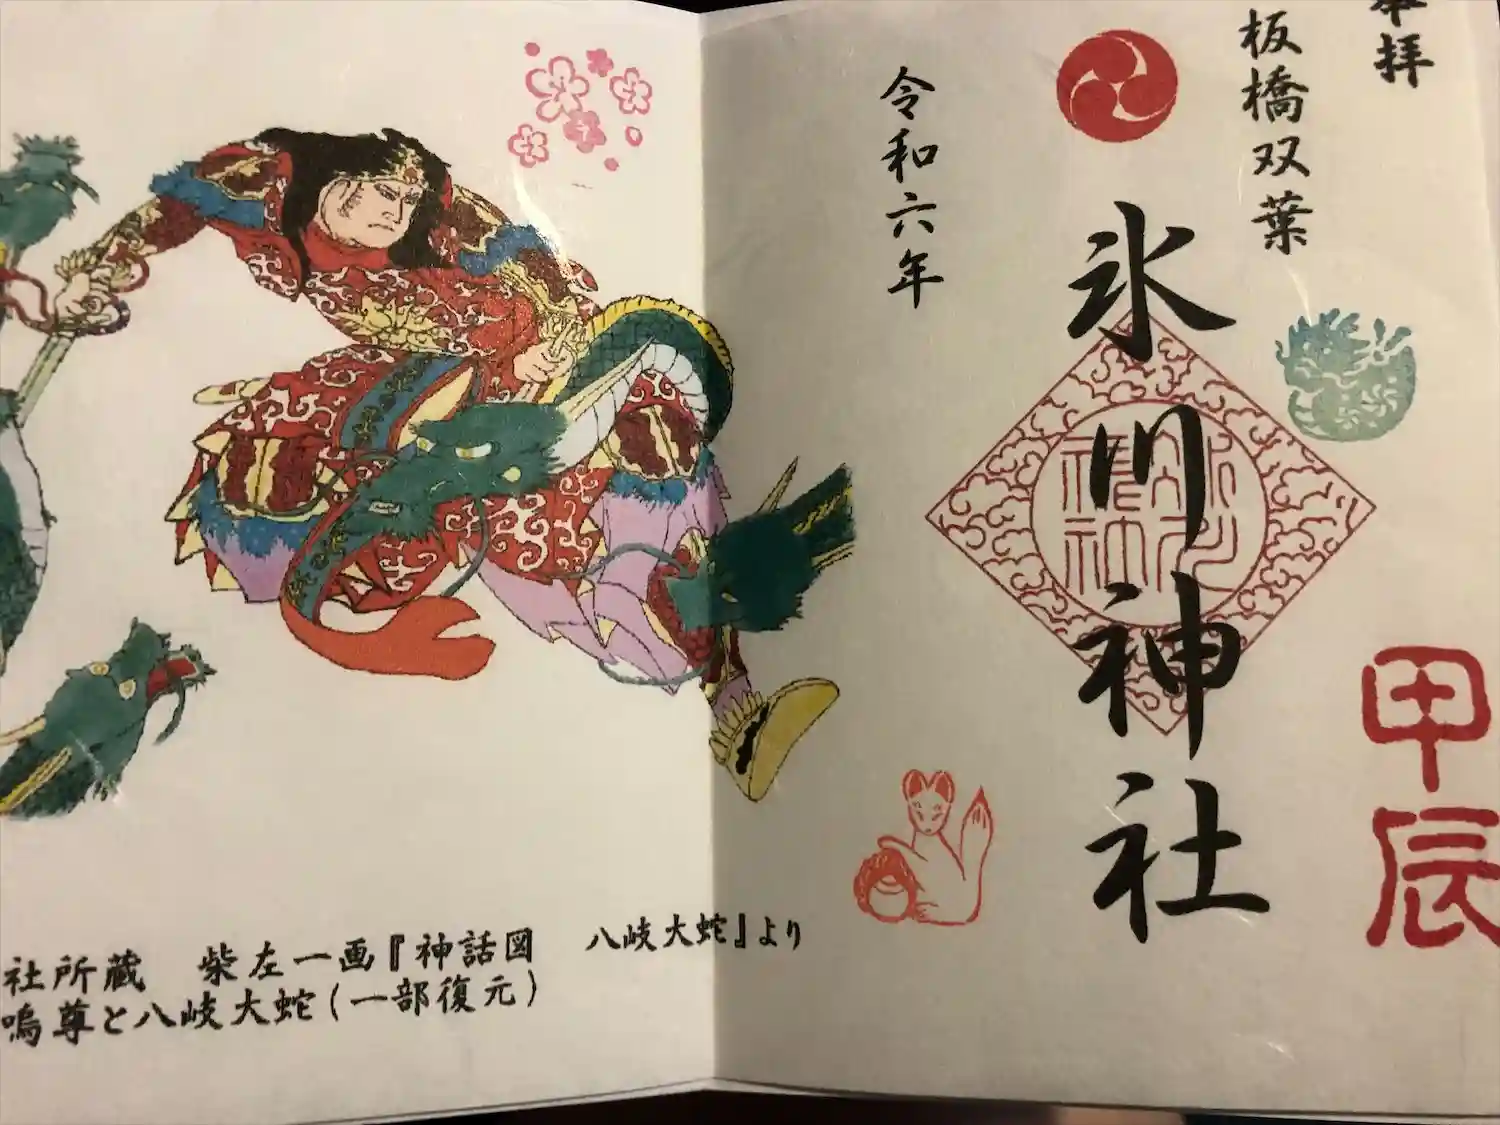 奉拝
板橋双葉
氷川神社
令和六年
甲辰
社所蔵 柴左一画『神話図 八岐大蛇』より
嗚尊と八岐大蛇(一部復元)